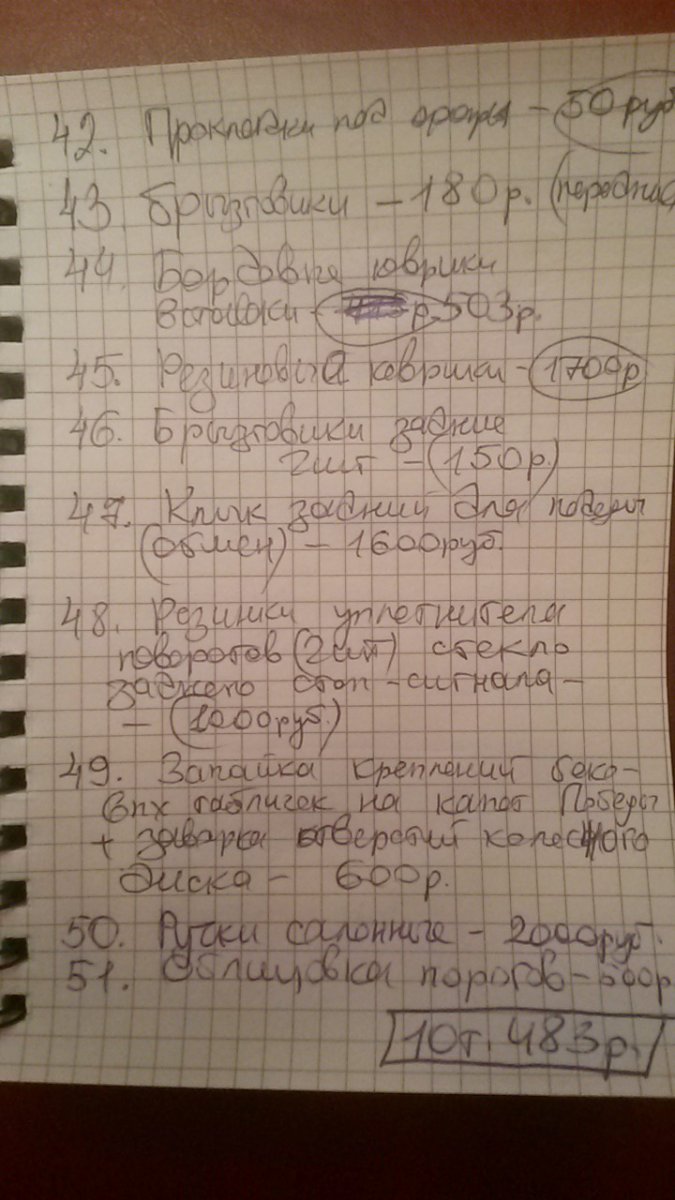 42. Прокладки под опоры - 50 руб
43 Брызговики - 180р. (передние
44. Бордовые коврики
- р. 503р.
45. Резиновые коврики - 1700р
46. Брызговики задние
2шт - (150р.)
47. Клык задний для победы
(обмен) - 1600руб.
48. Резинки уплетнителя
поворотов (2шт) стекло
заднего стоп-сигнала -
- (1000руб.)
49. Запайка креплений боко-
вых табличек на капот Победы
+ заварка отверстий колесного
диска - 600р.
50. Ручки салонные - 2000руб.
51. Облицовка порогов - 500р
10т. 483р.